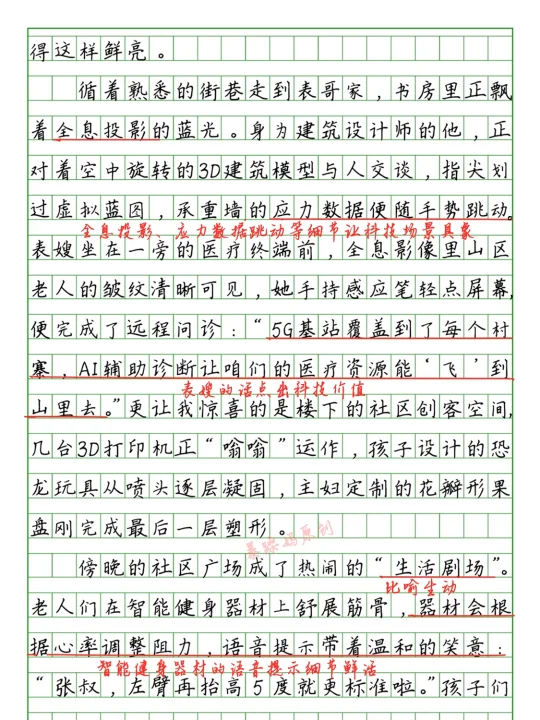 得这样鲜亮。
循着熟悉的街巷走到表哥家，书房里正飘
着全息投影的蓝光。身为建筑设计师的他，正
对着空中旋转的3D建筑模型与人交谈，指尖划
过虚拟蓝图，承重墙的应力数据便随手势跳动。
全息投影、应力数据跳动等细节让科技场景具象
表嫂坐在一旁的医疗终端前，全息影像里山区
老人的皱纹清晰可见，她手持感应笔轻点屏幕，
便完成了远程问诊：“5G基站覆盖到了每个村
寨，AI辅助诊断让咱们的医疗资源能‘飞’到
表嫂的话点出科技价值
山里去。”更让我惊喜的是楼下的社区创客空间，
几台3D打印机正“嗡嗡”运作，孩子设计的恐
龙玩具从喷头逐层凝固，主妇定制的花瓣形果
盘刚完成最后一层塑形。
原创
傍晚的社区广场成了热闹的“生活剧场”。
比喻生动
老人们在智能健身器材上舒展筋骨，器材会根
据心率调整阻力，语音提示带着温和的笑意：
智能健身器材的语音提示细节鲜活
“张叔，左臂再抬高5度就更标准啦。”孩子们